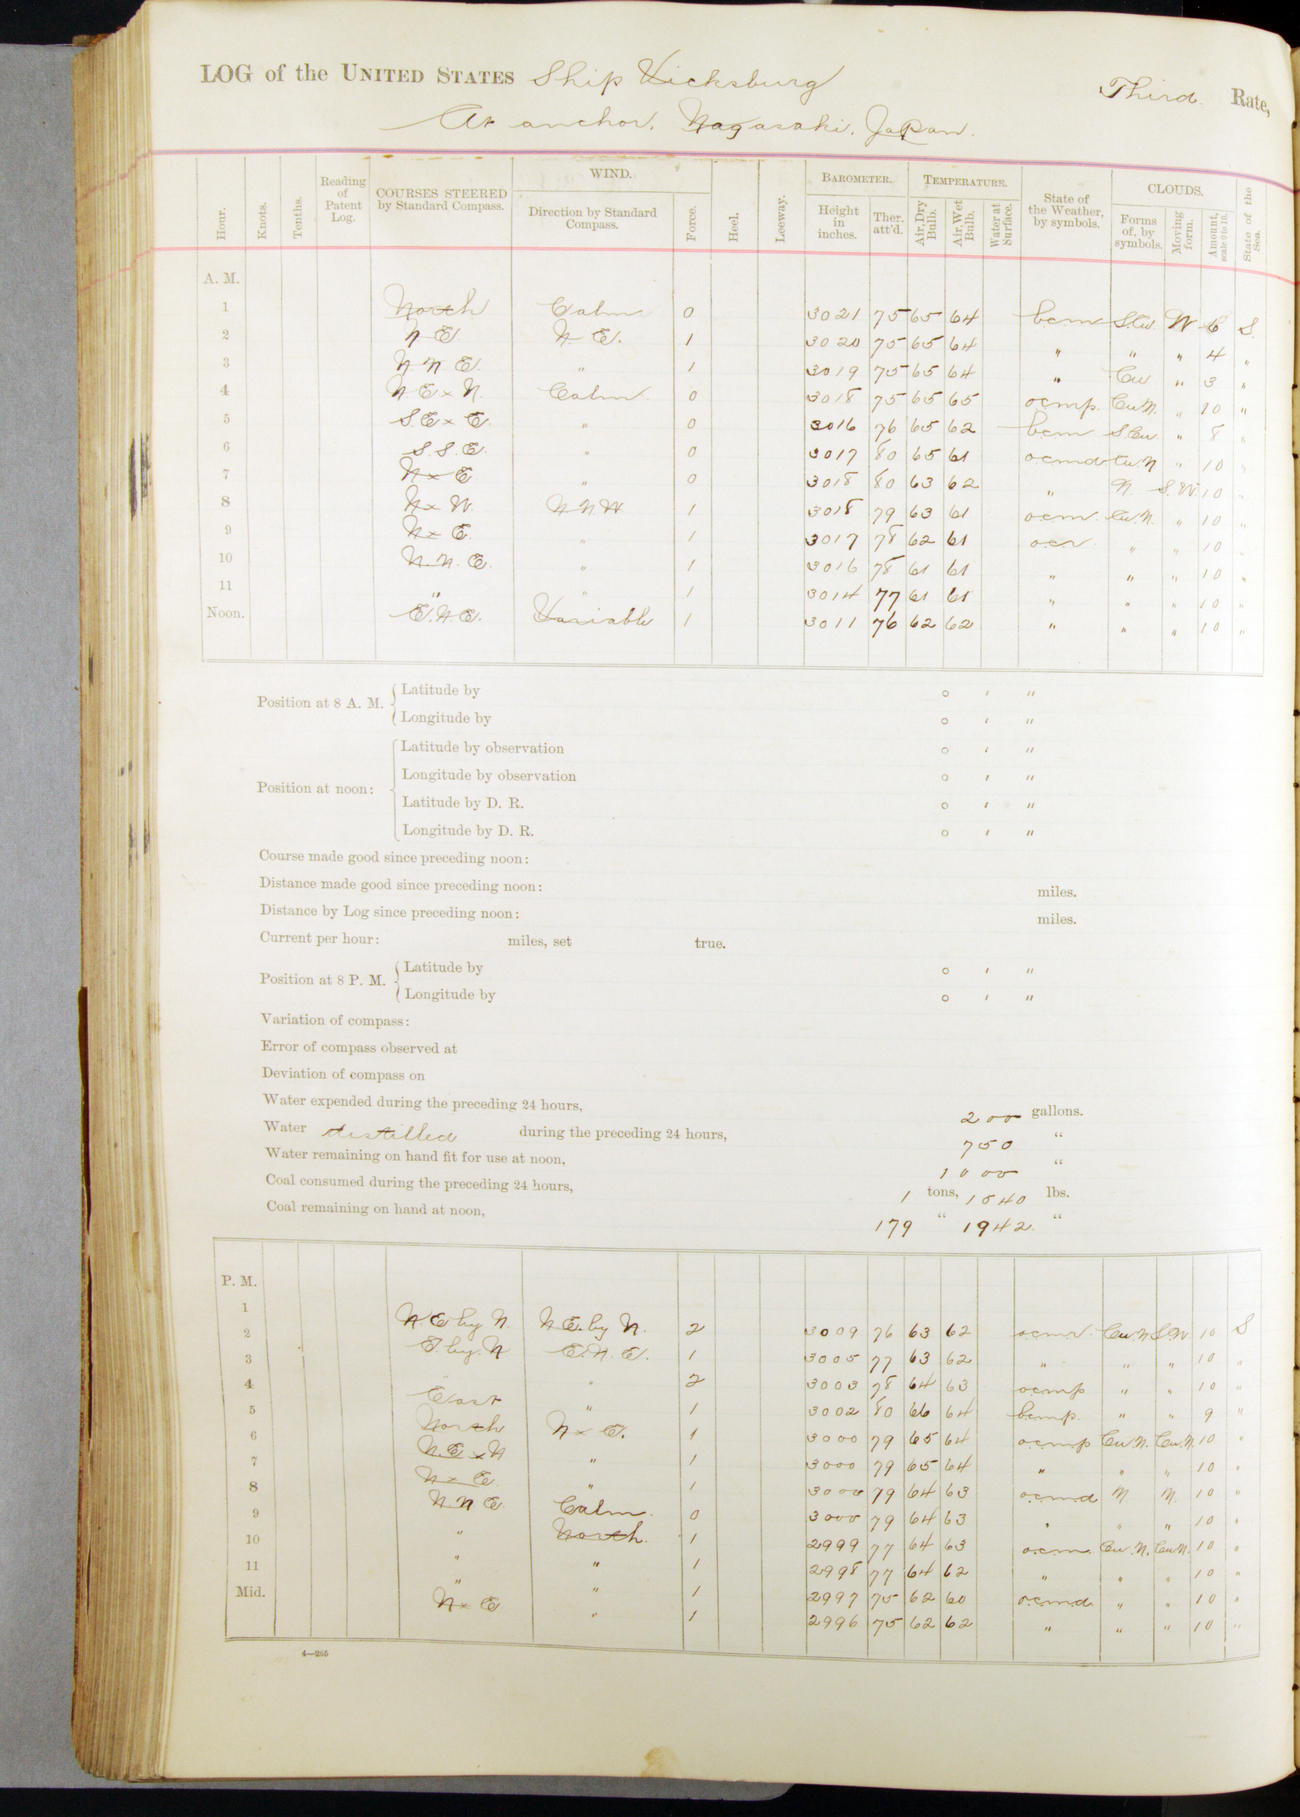 LOG of the UNITED STATES Ship Vicksburg Third Rate,
At anchor, Nagasaki, Japan.
Hour. Knots. Tenths. Reading of Patent Log. COURSES STEERED by Standard Compass. WIND. Direction by Standard Compass. Force. Heel. Leeway. BAROMETER. Height in inches. Ther. att'd. TEMPERATURE. Air, Dry Bulb. Air, Wet Bulb. Water at Surface. State of the Weather, by symbols. CLOUDS. Forms of, by symbols. Moving form. Amount, scale 0 to 10. State of the Sea.
A. M.
1 North Calm 0 3021 75 65 64 bcm S.Cu. W 6 S.
2 N E N E. 1 3020 75 65 64 " " " 4 "
3 N N E. " 1 3019 75 65 64 " Cu " 3 "
4 N E x N. Calm 0 3018 75 65 65 ocmp. Cu.N. " 10 "
5 S.E x E. " 0 3016 76 65 62 bcm S.Cu. " 8 "
6 S.S.E. " 0 3017 80 65 61 ocmd Cu.N " 10 "
7 N x E " 0 3018 80 63 62 " N. S.W. 10 "
8 N x W. N N W 1 3018 79 63 61 ocm. Cu.N. " 10 "
9 N x E. " 1 3017 78 62 61 ocr. " " 10 "
10 N.N.E. " 1 3016 78 61 61 " " " 10 "
11 " " 1 3014 77 61 61 " " " 10 "
Noon. E.N.E. Variable 1 3011 76 62 62 " " " 10 "
Position at 8 A. M. { Latitude by ° ' "
Longitude by ° ' "
Position at noon: { Latitude by observation ° ' "
Longitude by observation ° ' "
Latitude by D. R. ° ' "
Longitude by D. R. ° ' "
Course made good since preceding noon:
Distance made good since preceding noon: miles.
Distance by Log since preceding noon: miles.
Current per hour: miles, set true.
Position at 8 P. M. { Latitude by ° ' "
Longitude by ° ' "
Variation of compass:
Error of compass observed at
Deviation of compass on
Water expended during the preceding 24 hours, 200 gallons.
Water distilled during the preceding 24 hours, 750 "
Water remaining on hand fit for use at noon, 1000 "
Coal consumed during the preceding 24 hours, 1 tons, 1540 lbs.
Coal remaining on hand at noon, 179 " 1942 "
P. M.
1 N.E by N. N.E. by N. 2 3009 76 63 62 ocmr. Cu.N S.W 10 S
2 E. by. N E.N.E. 1 3005 77 63 62 " " " 10 "
3 " 2 3003 78 64 63 ocmp " " 10 "
4 East " 1 3002 80 66 64 bcmp. " " 9 "
5 North N x E. 1 3000 79 65 64 ocmp Cu.N. Cu.N. 10 "
6 N.E x N " 1 3000 79 65 64 " " " 10 "
7 N x E. " 1 3000 79 64 63 ocmd N N. 10 "
8 N.N E. Calm. 0 3000 79 64 63 " " " 10 "
9 " North. 1 2999 77 64 63 ocm. Cu.N. Cu.N. 10 "
10 " " 1 2998 77 64 62 " " " 10 "
11 " " 1 2997 75 62 60 ocmd " " 10 "
Mid. N x E " 1 2996 75 62 62 " " " 10 "
4—265